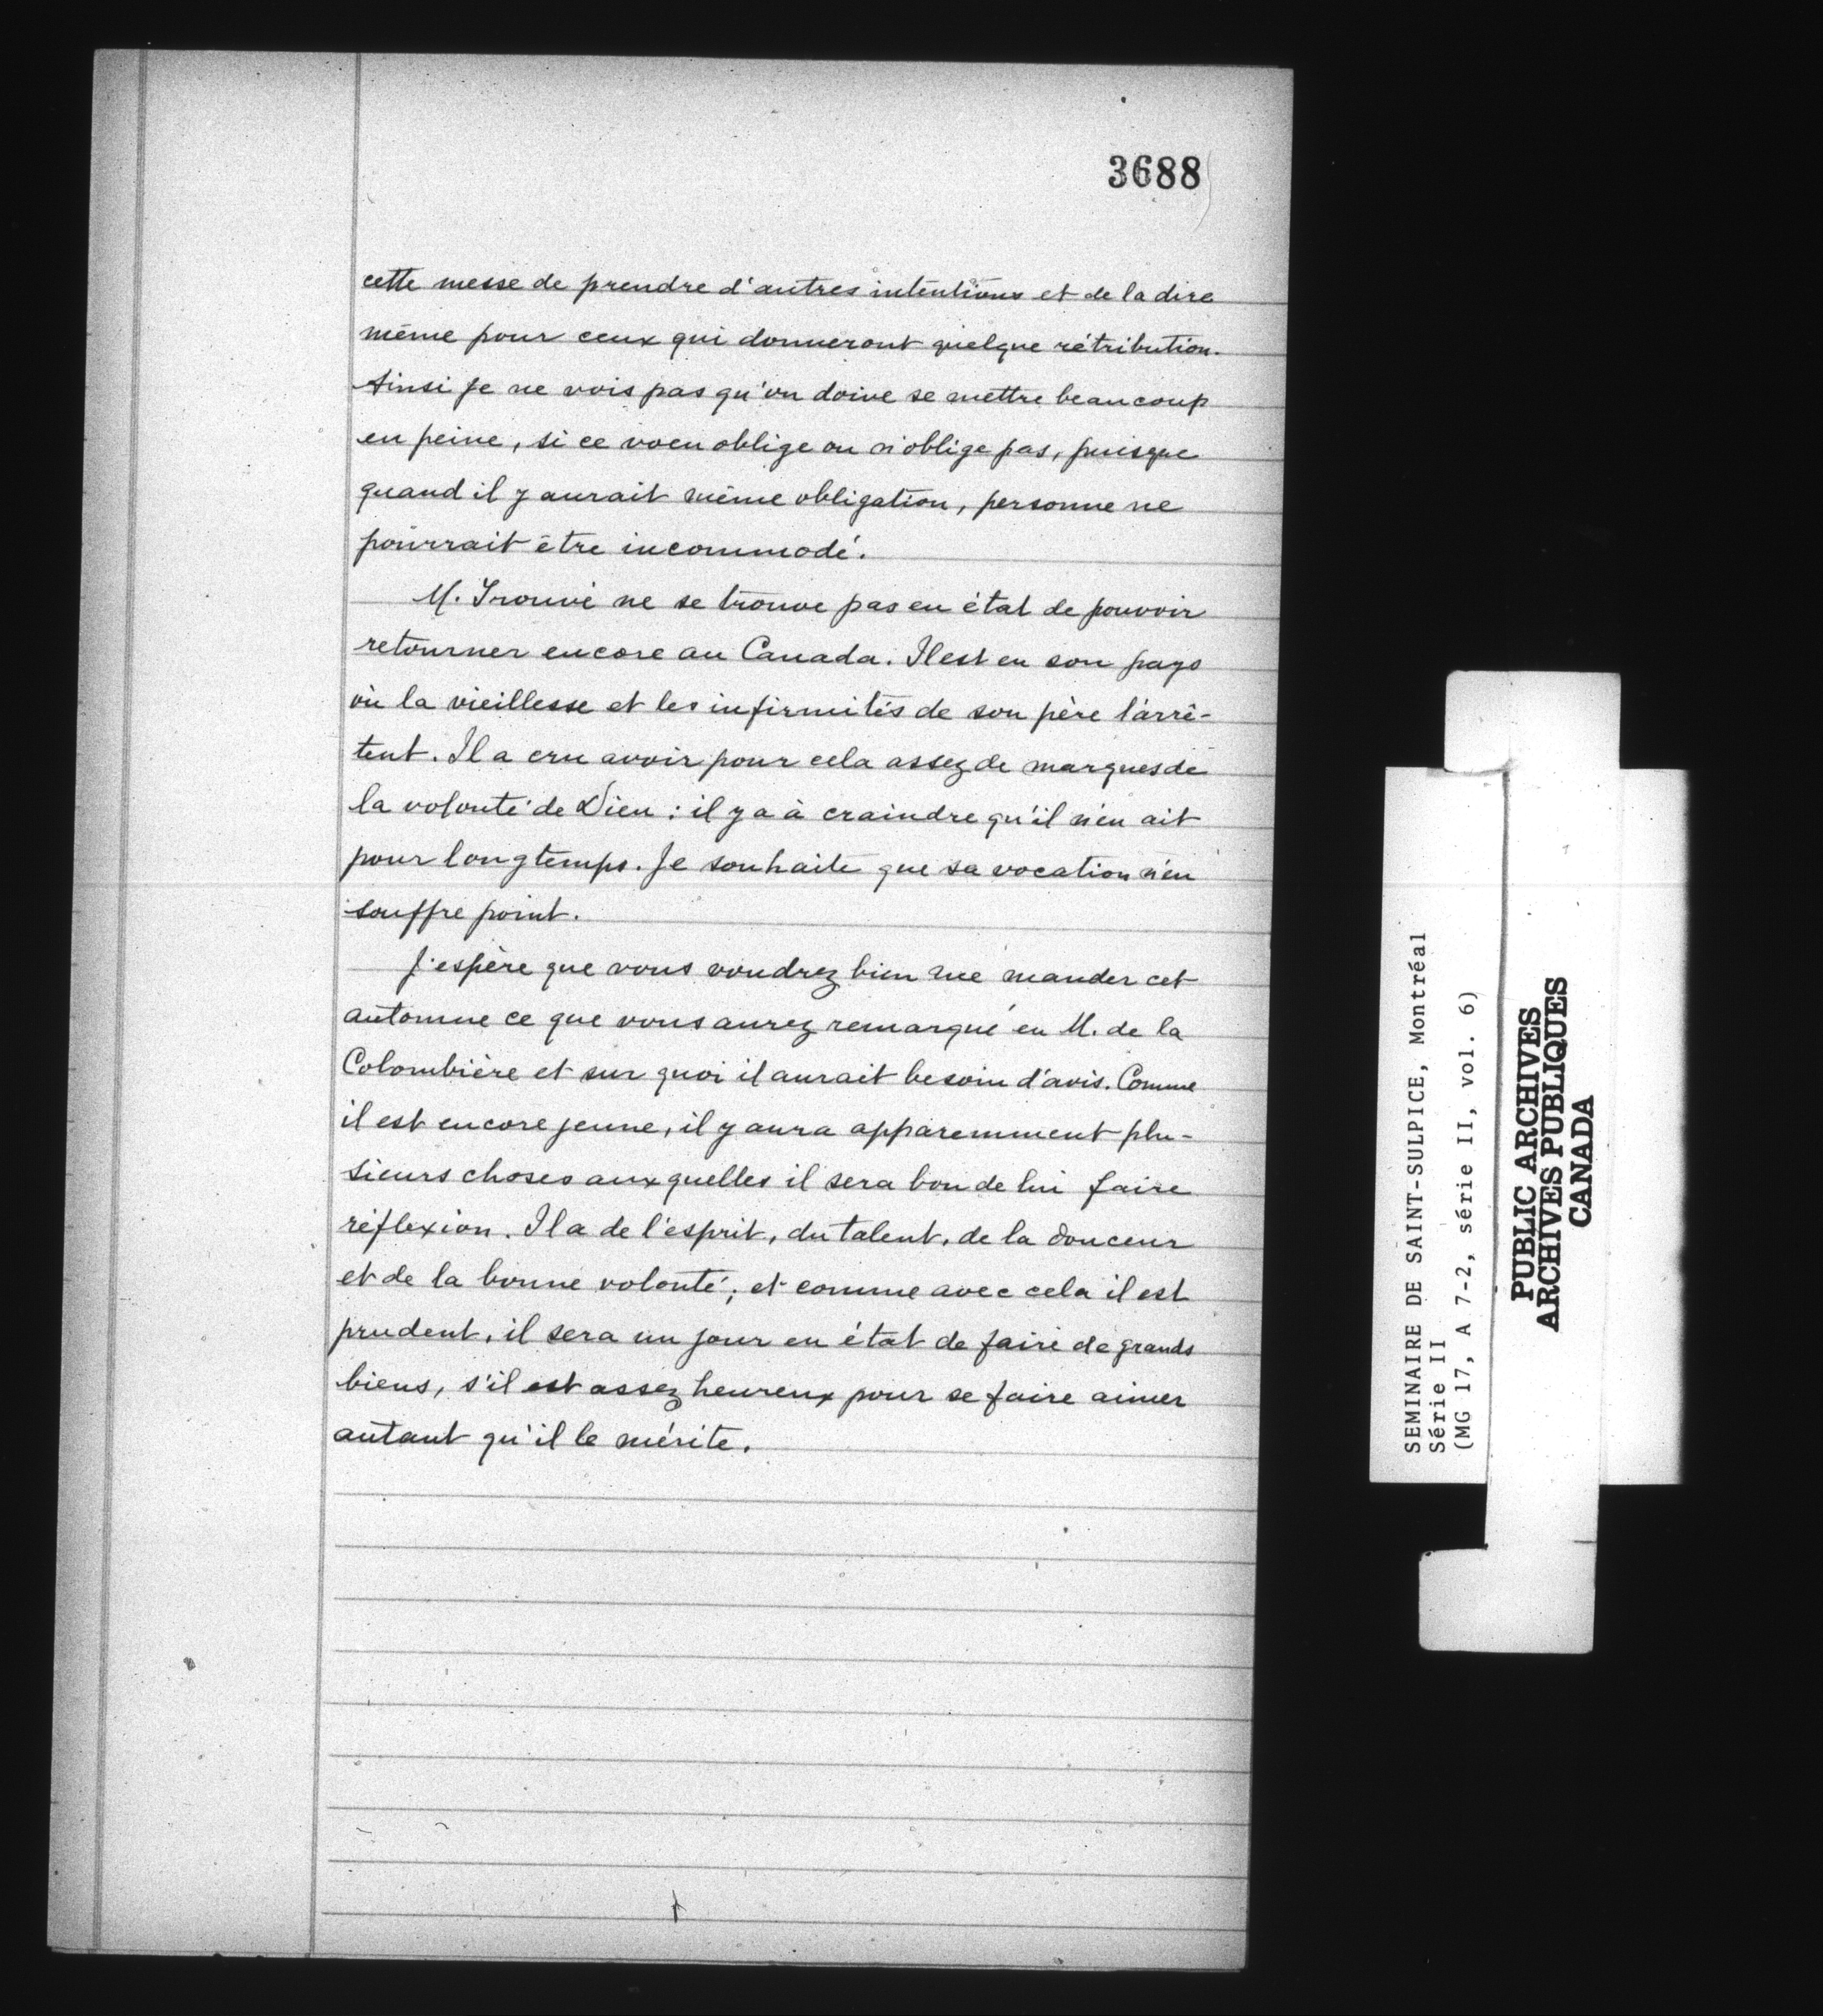 3688
cette messe de prendre d'autres intentions et de la dire
même pour ceux qui donneront quelque rétribution.
Ainsi je ne vois pas qu'on doive se mettre beaucoup
en peine, si ce voeu oblige ou n'oblige pas, puisque
quand il y aurait même obligation, personne ne
pourrait être incommodé.
M. Trouvé ne se trouve pas en état de pouvoir
retourner encore au Canada. Il est en son pays
où la vieillesse et les infirmités de son père l'arrê-
tent. Il a cru avoir pour cela assez de marques de
la volonté de Dieu : il y a à craindre qu'il n'en ait
pour longtemps. Je souhaite que sa vocation n'en
souffre point.
J'espère que vous voudrez bien me mander cet
automne ce que vous aurez remarqué en M. de la
Colombière et sur quoi il aurait besoin d'avis. Comme
il est encore jeune, il y aura apparemment plu-
sieurs choses auxquelles il sera bon de lui faire
réflexion. Il a de l'esprit, du talent, de la douceur
et de la bonne volonté; et comme avec cela il est
prudent, il sera un jour en état de faire de grands
biens, s'il est assez heureux pour se faire aimer
autant qu'il le mérite.
SEMINAIRE DE SAINT-SULPICE, Montréal
Série II
(MG 17, A 7-2, série II, vol. 6)
PUBLIC ARCHIVES
ARCHIVES PUBLIQUES
CANADA